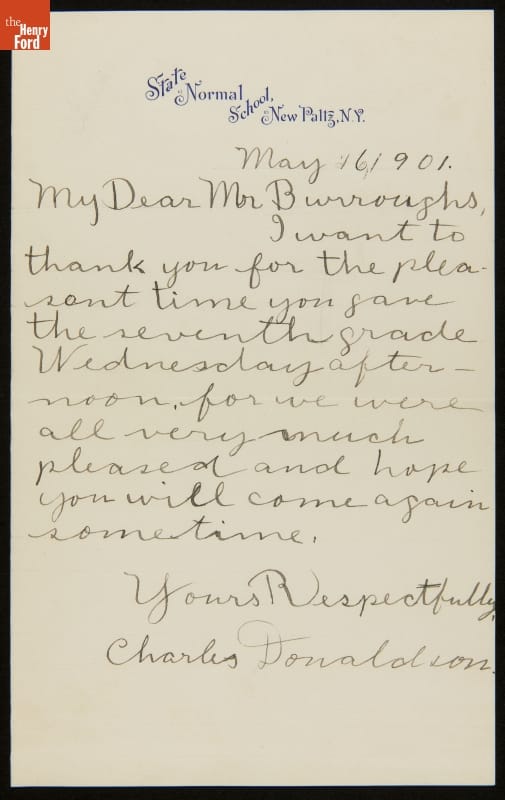 the
Henry
Ford
State
Normal
School,
New Paltz, N.Y.
May 16, 1901.
My Dear Mr Burroughs,
I want to
thank you for the plea-
sant time you gave
the seventh grade
Wednesday after-
noon, for we were
all very much
pleased and hope
you will come again
sometime.
Yours Respectfully,
Charles Donaldson.